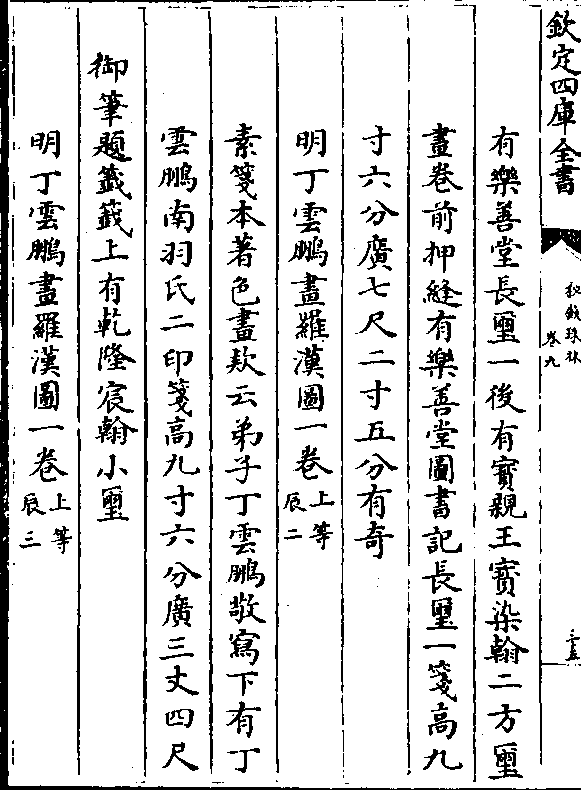 欽定四庫全書
秘殿珠林
卷九
三五
有樂善堂長璽一後有寳親王寳染翰二方璽
畫卷前押縫有樂善堂圖書記長璽一箋高九
寸六分廣七尺二寸五分有奇
明丁雲鵬畫羅漢圖一卷上等辰二
素箋本著色畫欵云弟子丁雲鵬敬寫下有丁
雲鵬南羽氏二印箋高九寸六分廣三丈四尺
御筆題籤籤上有乾隆宸翰小璽
明丁雲鵬畫羅漢圖一卷上等辰三